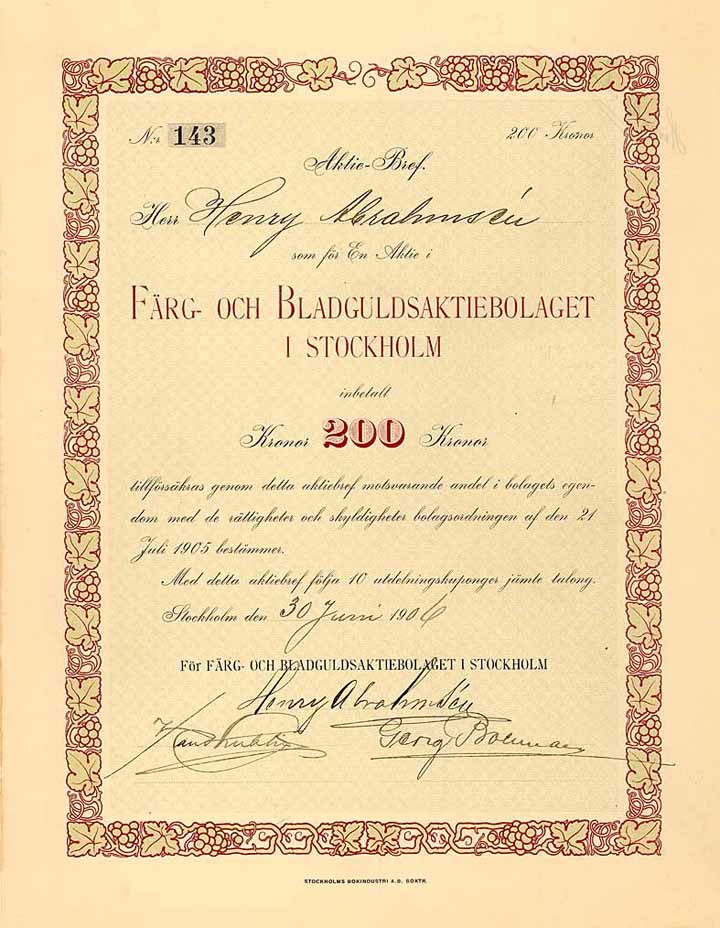 N:r 143 200 Kronor
Aktie-Bref.
Herr Henry Abrahmsén
som för En Aktie i
FÄRG- OCH BLADGULDSAKTIEBOLAGET
I STOCKHOLM
inbetalt
Kronor 200 Kronor
tillförsäkras genom detta aktiebref motsvarande andel i bolagets egen-
dom med de rättigheter och skyldigheter bolagsordningen af den 21
Juli 1905 bestämmer.
Med detta aktiebref följa 10 utdelningskuponger jämte talong.
Stockholm den 30 Juni 1906
För FÄRG- OCH BLADGULDSAKTIEBOLAGET I STOCKHOLM
Henry Abrahmsén
Georg
STOCKHOLMS BOKINDUSTRI A.B. BOKTR.